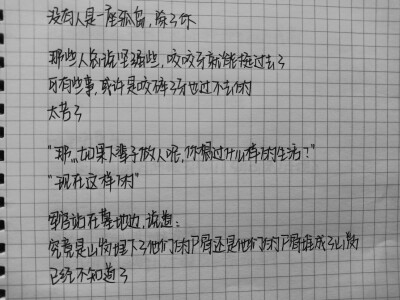 没有人是一座孤岛，除了你
那些人总说坚强些，咬咬牙就能挺过去了
可有些事，或许是咬碎了牙也过不去的
太苦了
"那……如果下辈子做人呢，你想过什么样的生活？"
"现在这样的"
站在墓地边，说道：
究竟是山坟埋下了他们的尸骨还是他们的尸骨堆成了山坟
已经不知道了